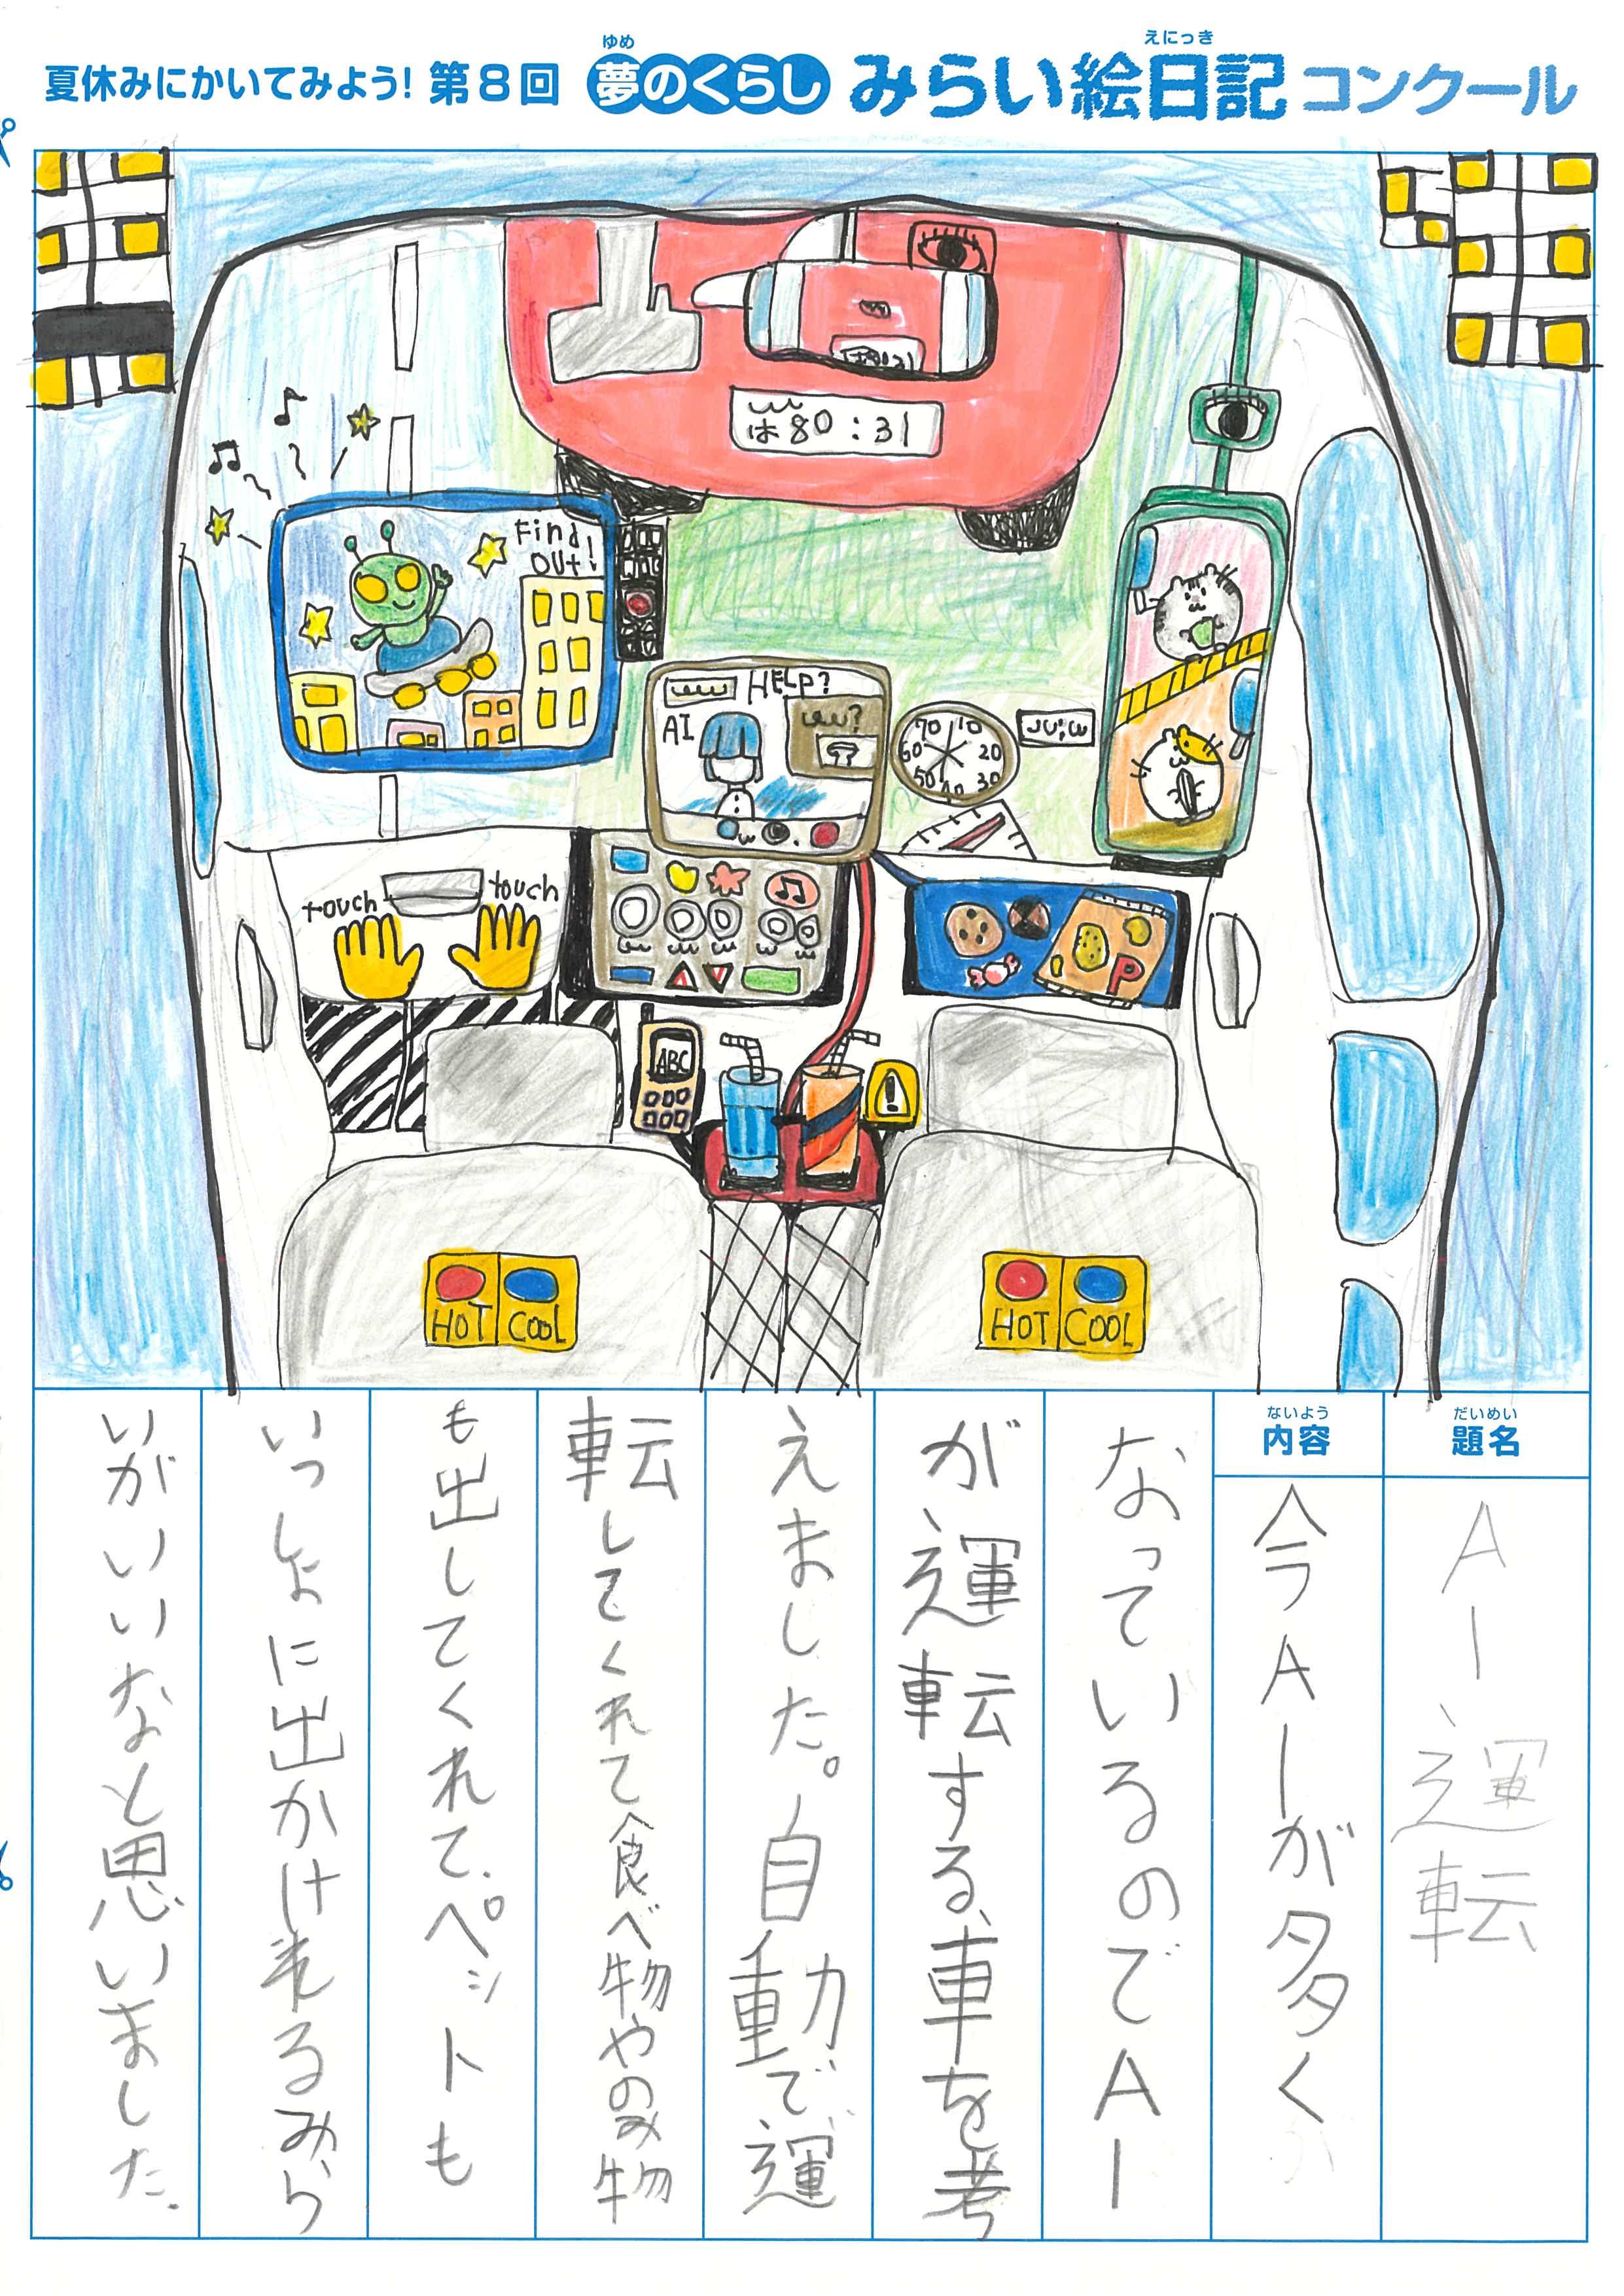 夏休みにかいてみよう! 第8回 夢のくらし みらい絵日記コンクール
ゆめ
えにっき
は80:31
Find
OUT!
HELP?
AI
70 10
60 20
50 40 30
touch
touch
P
ABC
HOT COOL
HOT COOL
だいめい
題名
AI運転
ないよう
内容
今AIが多く
なっているのでAI
が運転する車を考
えました。自動で運
転してくれて食べ物やのみ物
も出してくれて、ペットも
いっしょに出かけれるみら
いがいいなと思いました。